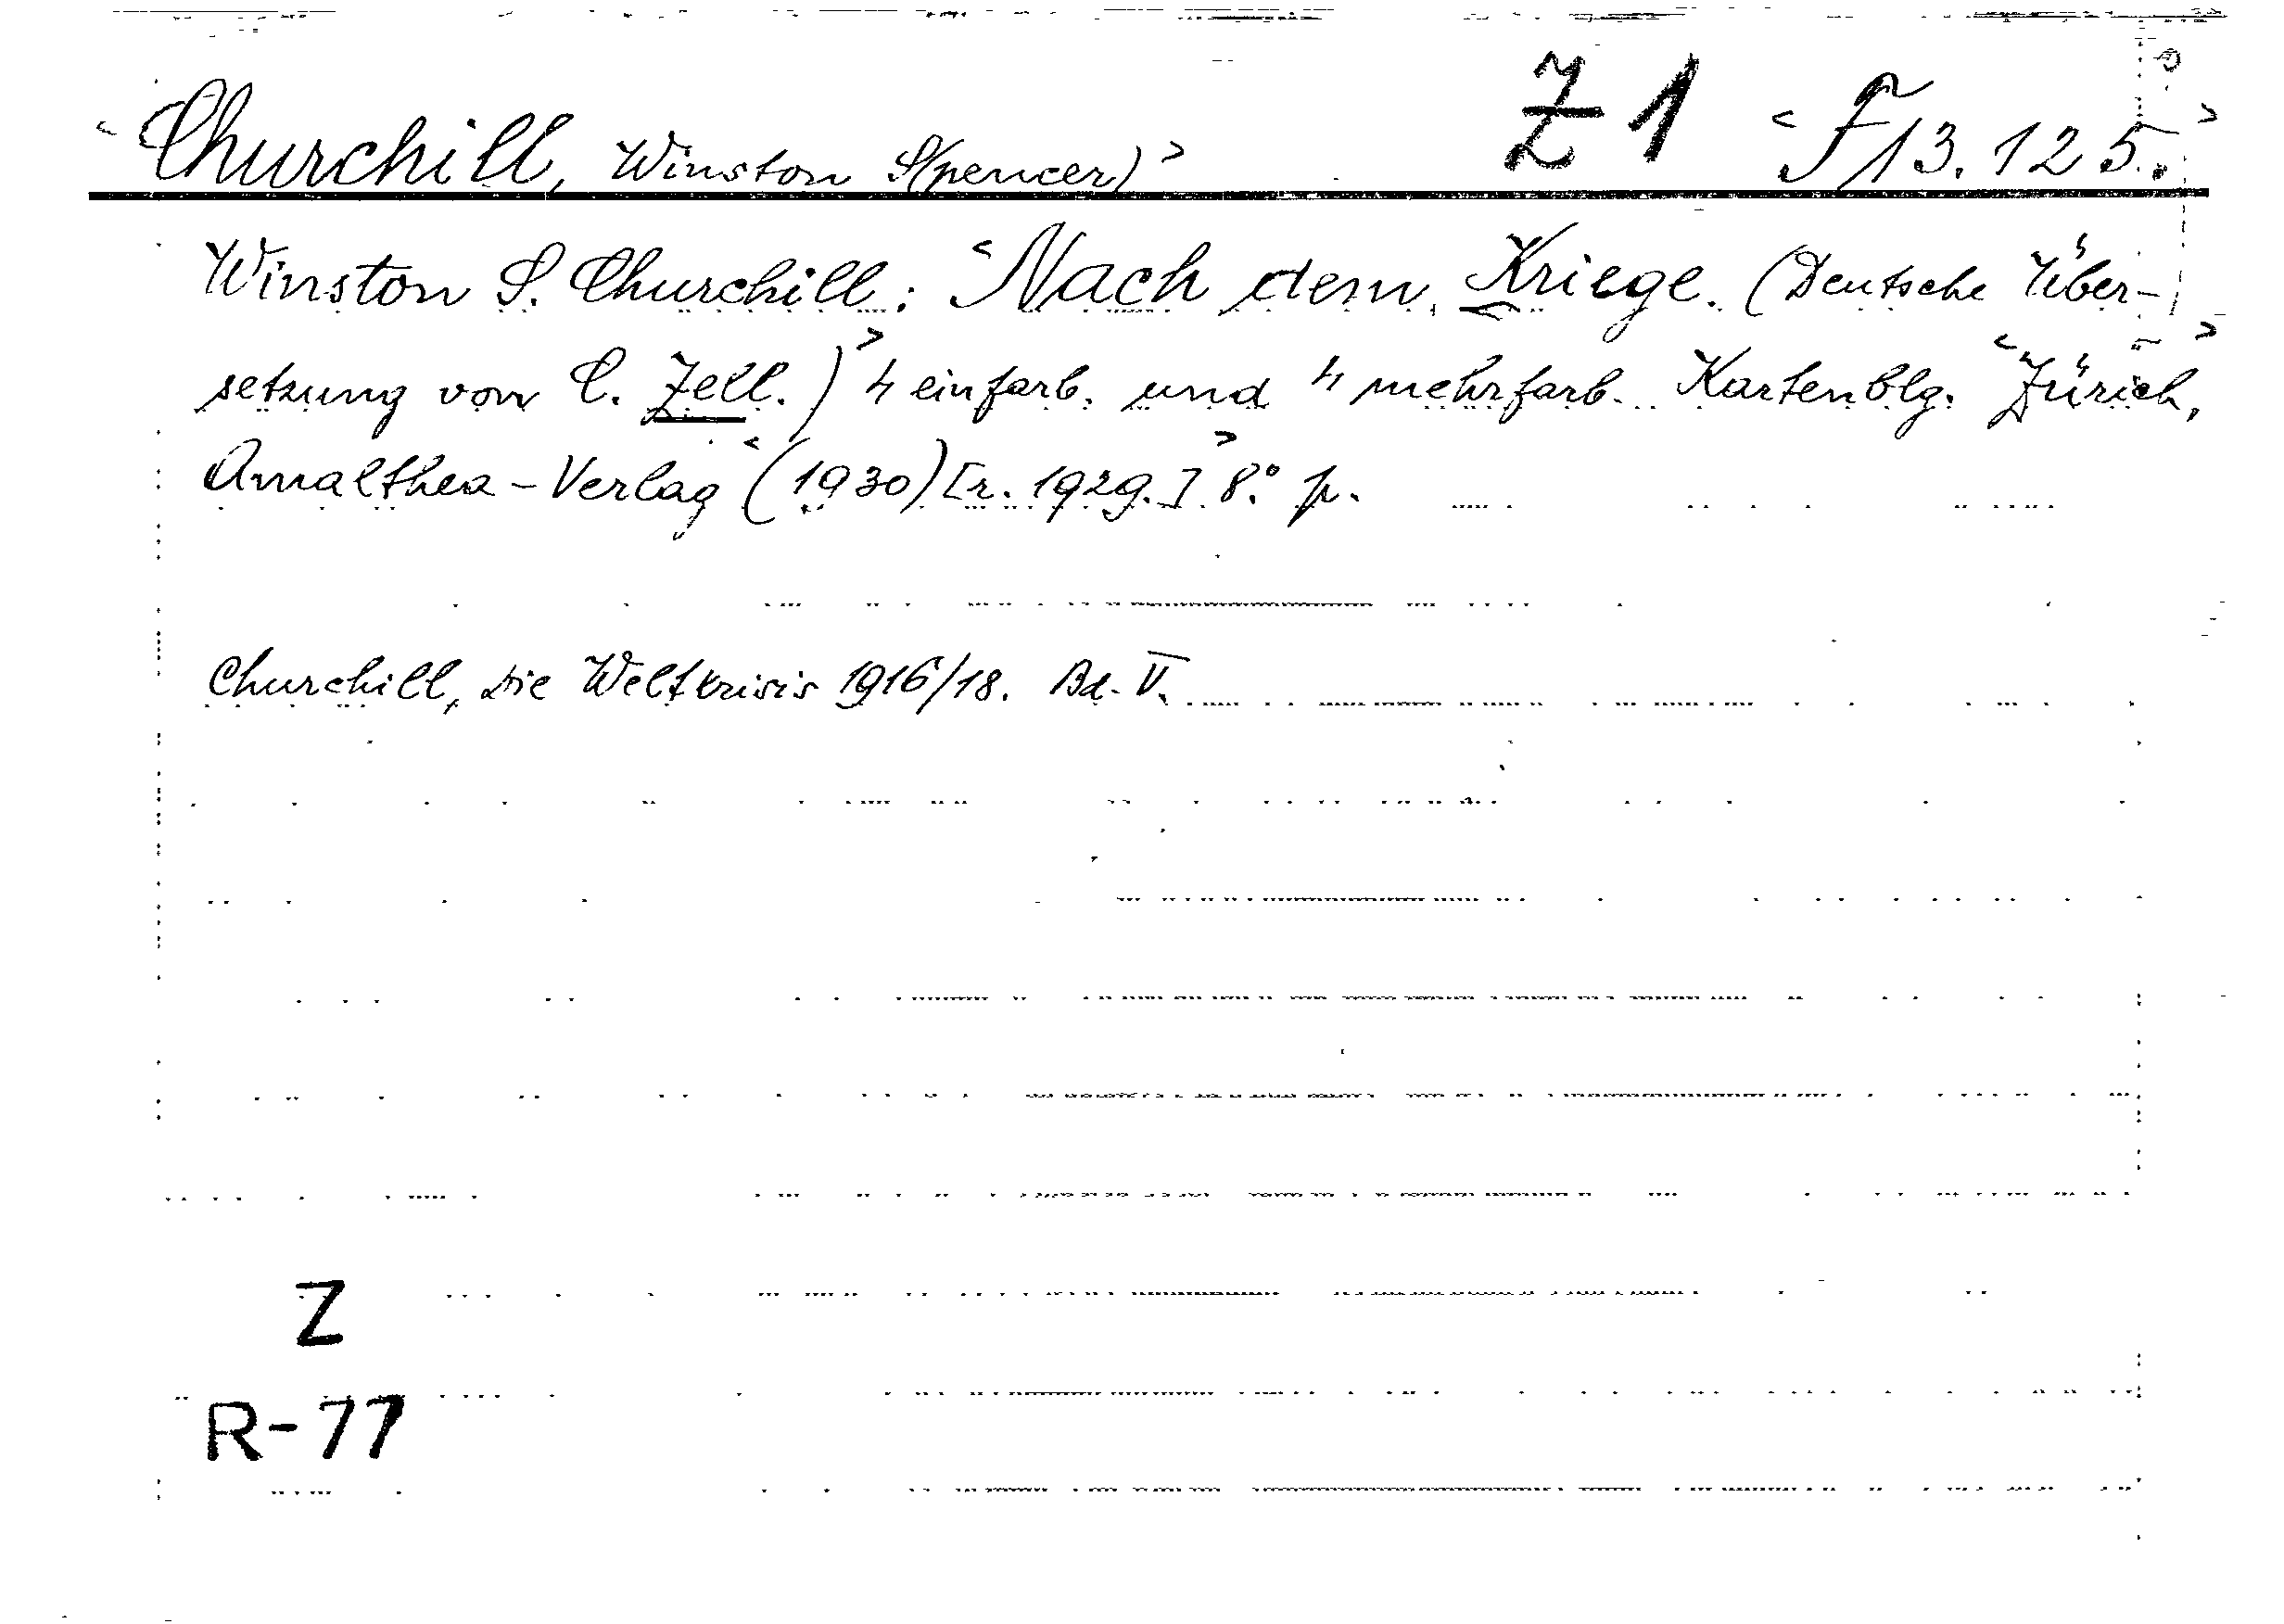 <Churchill, Winston S(pencer)> Z1 <F13.125.>
Winston S. Churchill: <Nach dem Kriege. (Deutsche Über-
setzung von C. Zell.)> 4 einfarb. und 4 mehrfarb. Kartenblg. <Zürich,>
Amalthea-Verlag <(1930) [r. 1929.]> 8.° p.
Churchill, Die Weltkrisis 1916/18. Bd. V.
Z
R-77